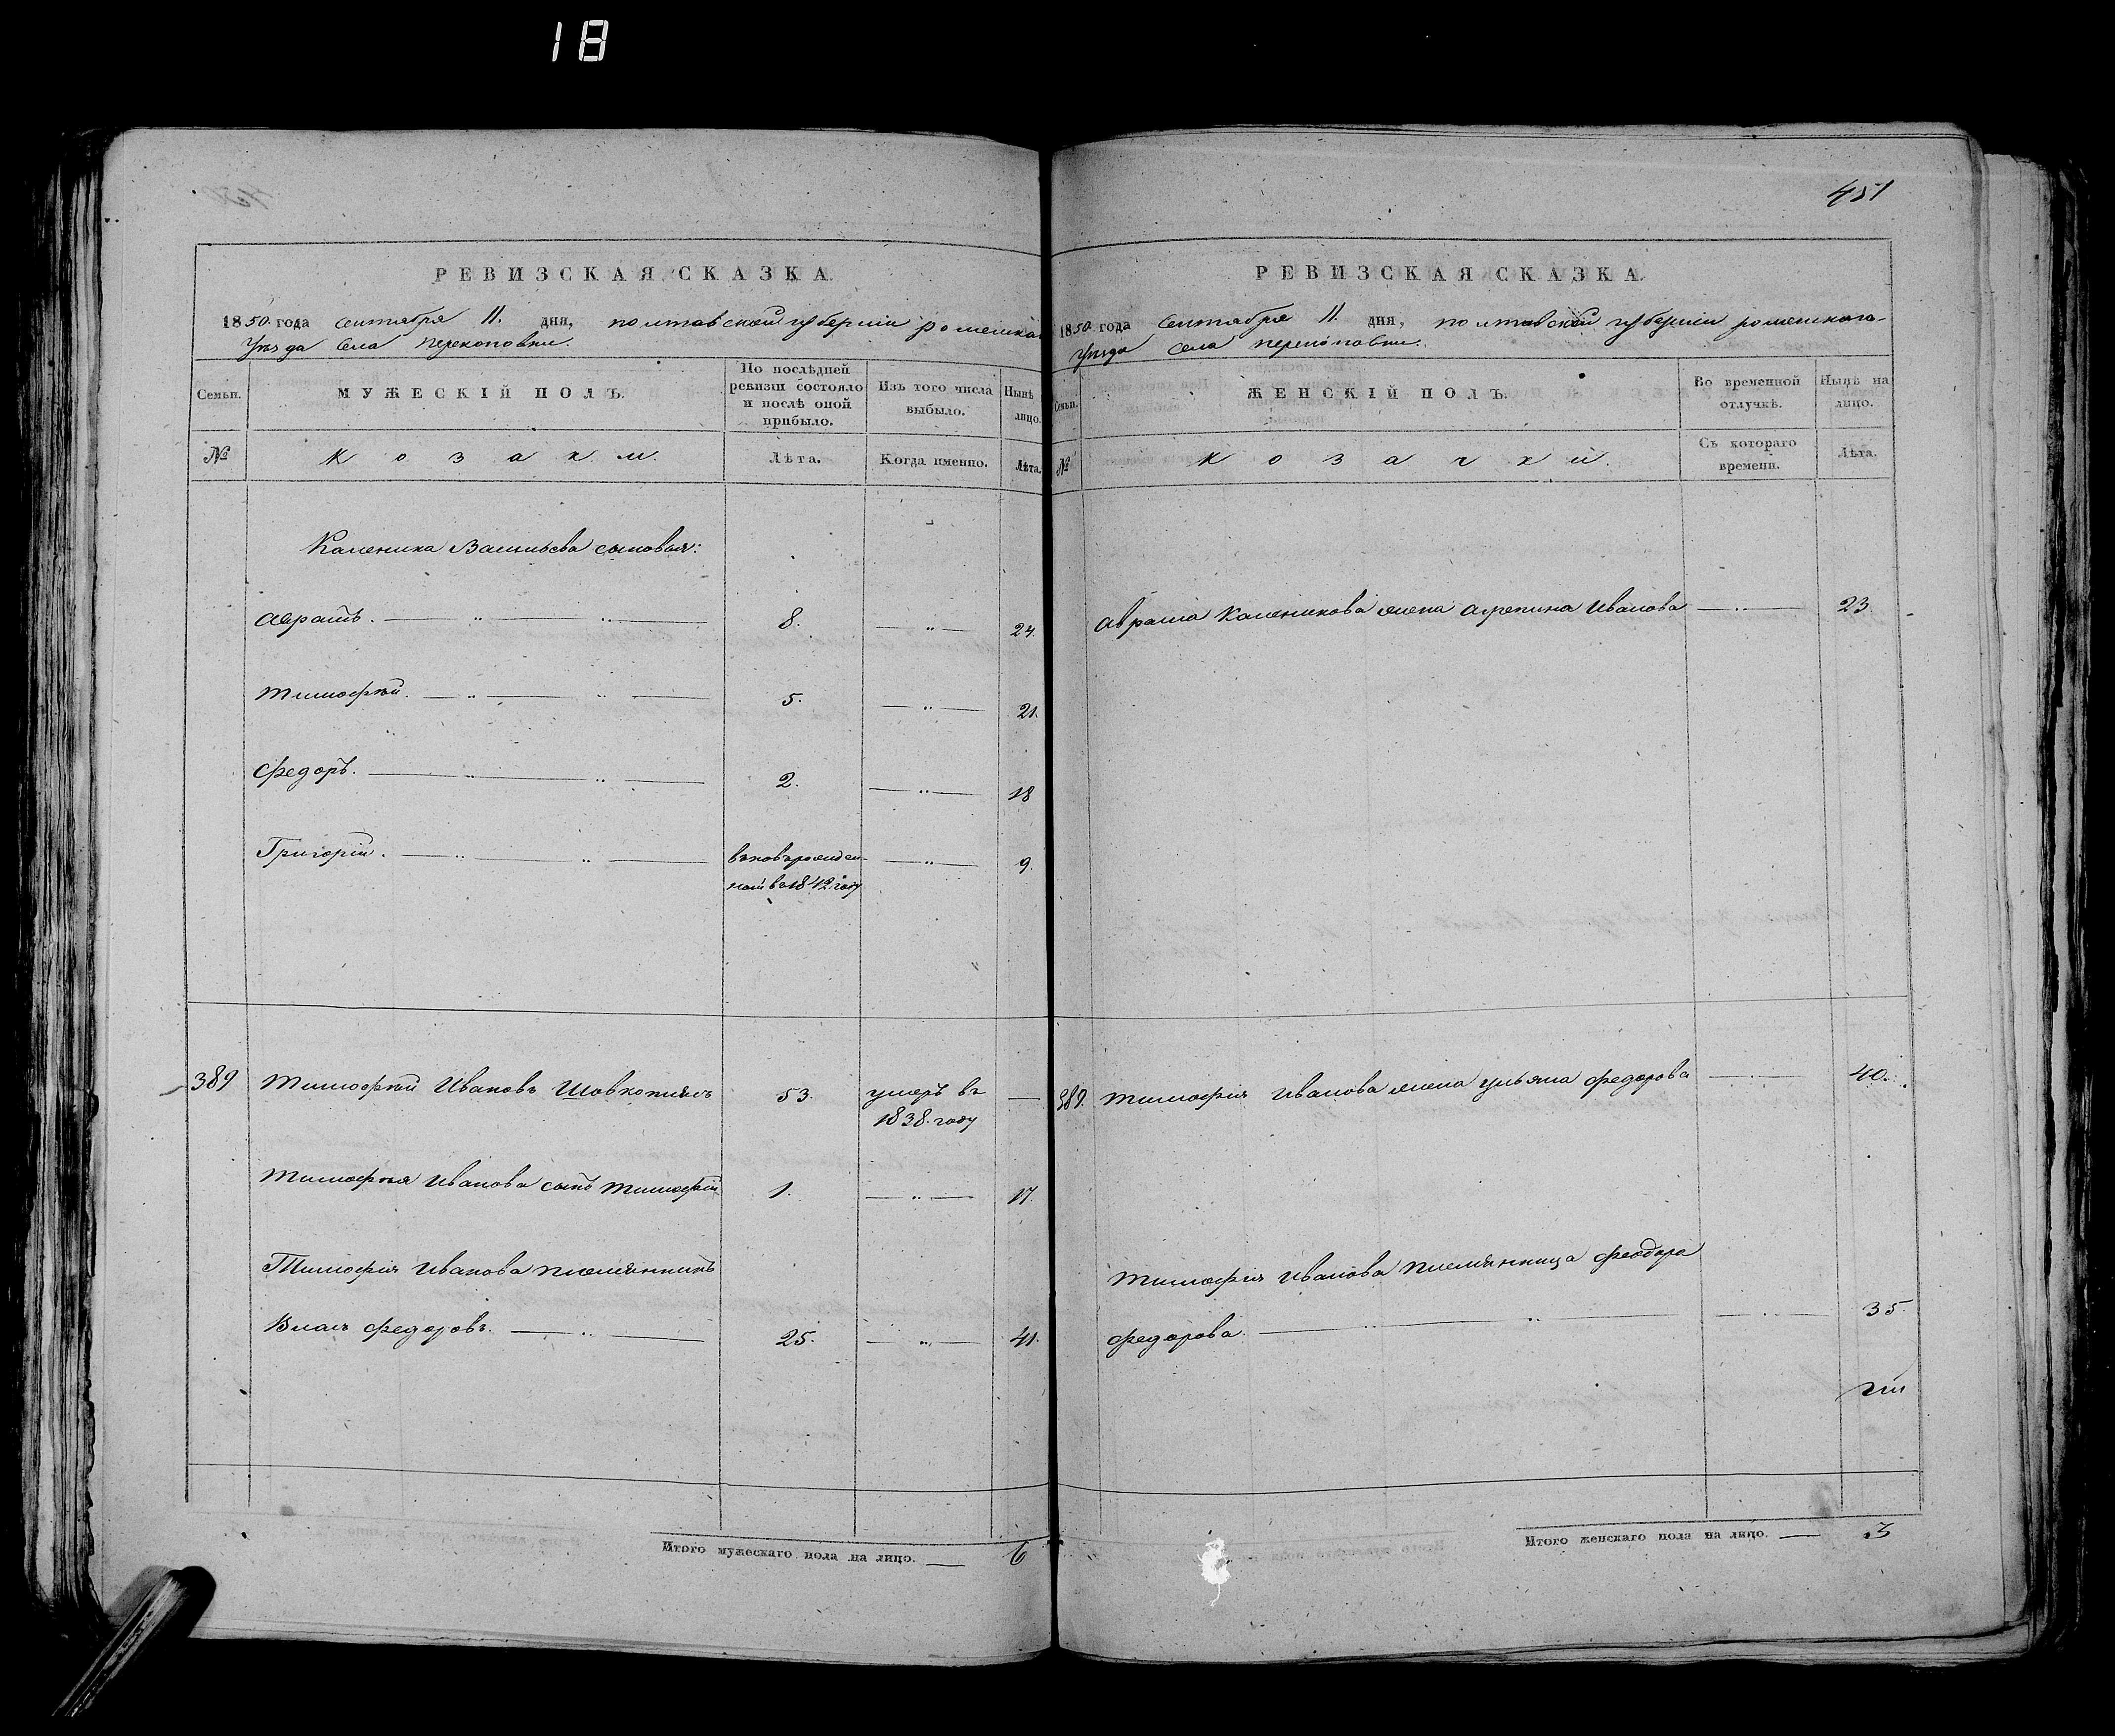 18
451
РЕВИЗСКАЯ СКАЗКА.
1850 года Сентября 11. дня, полтавской губерніи роменскаго
Уѣзда Села Перекоповки.
Семьи.
МУЖЕСКІЙ ПОЛЪ.
По послѣдней
ревизіи состояло
и послѣ оной
прибыло.
Изъ того числа
выбыло.
Нынѣ
лицо.
№
Козаки.
Лѣта.
Когда именно.
Лѣта.
Каленика Васильева сыновья:
Аврамъ. 8. 24.
Тимофѣй. 5. 21.
Федоръ. 2. 18
Григорій. 9.
въ 1842 году
389 Тимофѣй Ивановъ Шовкоплясъ 53. умеръ въ
1838. году
Тимофѣя Иванова сынъ Тимофѣй 1. 17.
Тимофѣя Иванова племянникъ
Власъ Федоровъ. 25. 41.
Итого мужескаго пола на лицо. 6
РЕВИЗСКАЯ СКАЗКА.
1850 года Сентября 11. дня, полтавской губерніи роменскаго
Уѣзда Села Перекоповки.
Семьи.
ЖЕНСКІЙ ПОЛЪ.
Во временной
отлучкѣ.
Нынѣ на
лицо.
№
Козачки.
Съ котораго
времени.
Лѣта.
Аврама Каленикова жена Агрепина Иванова 23
389. Тимофѣя Иванова жена Ульяна Федорова 40.
Тимофѣя Иванова племянница Феодора
Федорова. 35.
Итого женскаго пола на лицо. 3